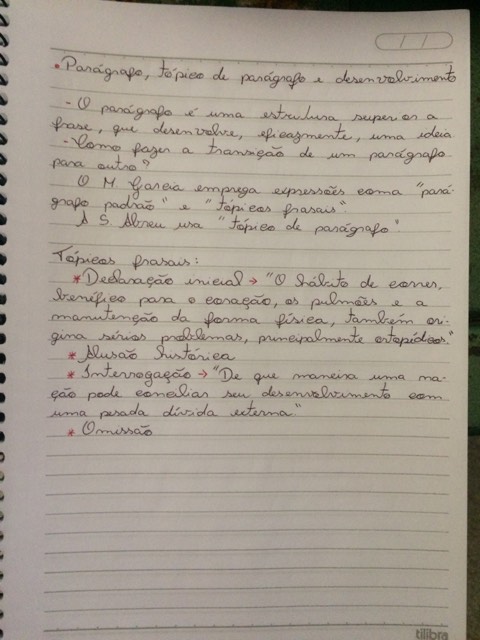 • Parágrafo, tópico de parágrafo e desenvolvimento
- O parágrafo é uma estrutura superior a
frase, que desenvolve, eficazmente, uma ideia
- Como fazer a transição de um parágrafo
para outro?
O M. Garcia emprega expressões como "pará-
grafo padrão" e "tópicos frasais".
A S. Abreu usa "tópico de parágrafo".
Tópicos frasais:
* Declaração inicial → "O hábito de correr,
benéfico para o coração, os pulmões e a
manutenção da forma física, também ori
gina sérios problemas, principalmente ortopédicos."
* Alusão histórica
* Interrogação → "De que maneira uma na-
ção pode conciliar seu desenvolvimento com
uma pesada dívida externa"
* Omissão
tilibra